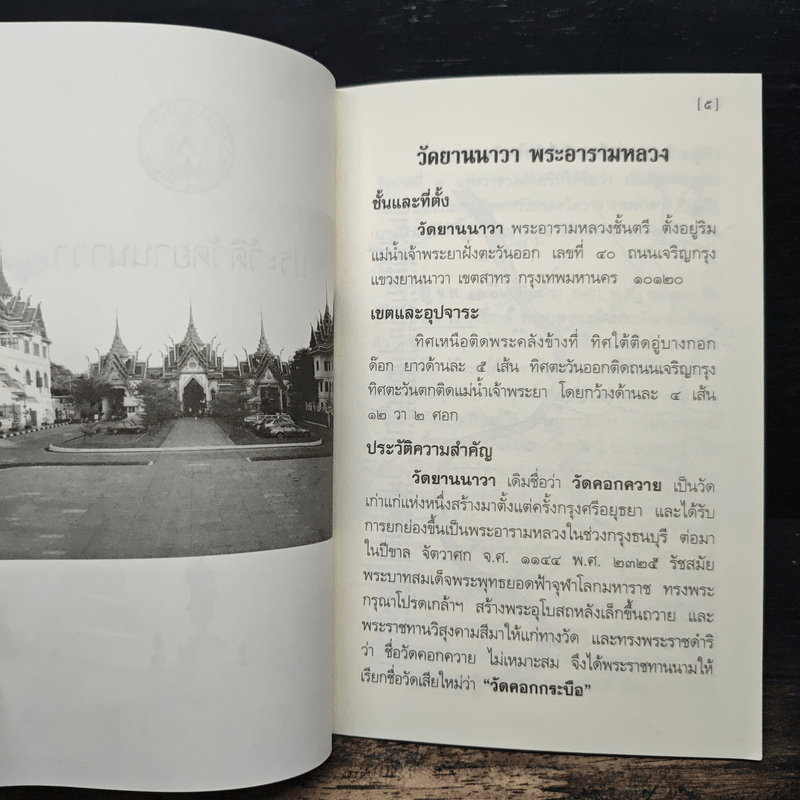 [๕]
วัดยานนาวา พระอารามหลวง
ชั้นและที่ตั้ง
วัดยานนาวา พระอารามหลวงชั้นตรี ตั้งอยู่ริม
แม่น้ำเจ้าพระยาฝั่งตะวันออก เลขที่ ๔๐ ถนนเจริญกรุง
แขวงยานนาวา เขตสาทร กรุงเทพมหานคร ๑๐๑๒๐
เขตและอุปจาระ
ทิศเหนือติดพระคลังข้างที่ ทิศใต้ติดอู่บางกอก
ด๊อก ยาวด้านละ ๕ เส้น ทิศตะวันออกติดถนนเจริญกรุง
ทิศตะวันตกติดแม่น้ำเจ้าพระยา โดยกว้างด้านละ ๔ เส้น
๑๒ วา ๒ ศอก
ประวัติความสำคัญ
วัดยานนาวา เดิมชื่อว่า วัดคอกควาย เป็นวัด
เก่าแก่แห่งหนึ่งสร้างมาตั้งแต่ครั้งกรุงศรีอยุธยา และได้รับ
การยกย่องขึ้นเป็นพระอารามหลวงในช่วงกรุงธนบุรี ต่อมา
ในปีขาล จัตวาศก จ.ศ. ๑๑๔๔ พ.ศ. ๒๓๒๕ รัชสมัย
พระบาทสมเด็จพระพุทธยอดฟ้าจุฬาโลกมหาราช ทรงพระ
กรุณาโปรดเกล้าฯ สร้างพระอุโบสถหลังเล็กขึ้นถวาย และ
พระราชทานวิสุงคามสีมาให้แก่ทางวัด และทรงพระราชดำริ
ว่า ชื่อวัดคอกควาย ไม่เหมาะสม จึงได้พระราชทานนามให้
เรียกชื่อวัดเสียใหม่ว่า “วัดคอกกระบือ”